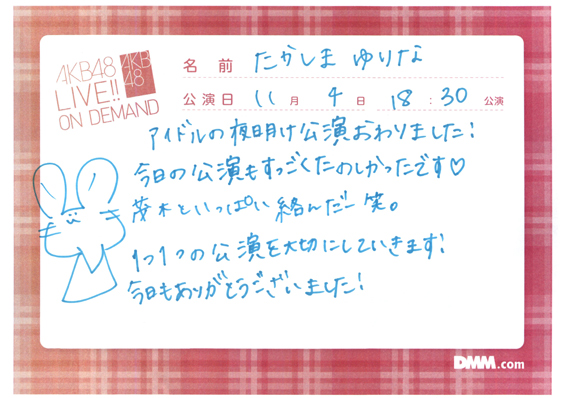 AKB48
LIVE!!
ON DEMAND
AKB
48
名前 たかしま ゆりな
公演日 11月 4日 18:30 公演
アイドルの夜明け公演おわりました!
今日の公演もすっごくたのしかったです♡
茂木といっぱい絡んだー笑。
1つ1つの公演を大切にしていきます!
今日もありがとうございました!
DMM.com